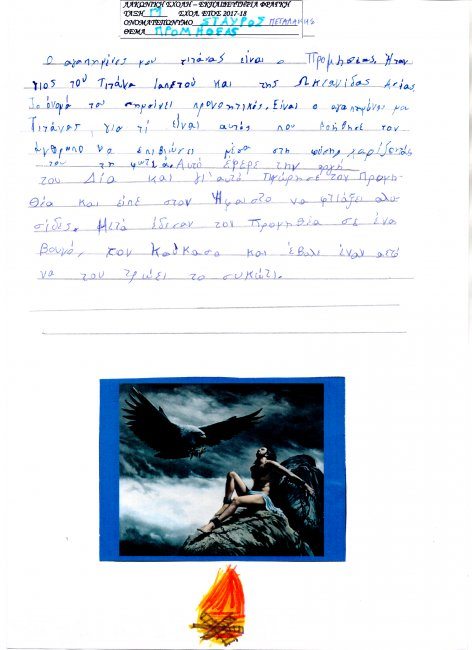 ΛΑΚΩΝΙΚΗ ΣΧΟΛΗ – ΕΚΠΑΙΔΕΥΤΗΡΙΑ ΦΡΑΓΚΗ
ΤΑΞΗ ΣΧΟΛ. ΕΤΟΣ 2017-18
ΟΝΟΜΑΤΕΠΩΝΥΜΟ ΣΤΑΥΡΟΣ ΠΕΤΑΛΑΚΗΣ
ΘΕΜΑ ΠΡΟΜΗΘΕΑΣ
Ο αγαπημένος μου τιτάνας είναι ο Προμηθέας. Ήταν
γιος του Τιτάνα Ιαπετού και της Ωκεανίδας Ασίας.
Το όνομά του σημαίνει προνοητικός. Είναι ο αγαπημένος μου
Τιτάνας, για τί είναι αυτός που βοήθησε τον
άνθρωπο να επιβιώσει μέσα στη φύση χαρίζοντάς
του τη φωτιά. Αυτό έφερε την οργή
του Δία και γι'αυτό τιμώρησε τον Προμη-
θέα και είπε στον Ήφαιστο να φτιάξει αλυ-
σίδες. Μετά έδεσαν τον Προμηθέα σε ένα
βουνό, τον Καύκασο και έβαλε έναν αετό
να του τρώει το συκώτι.